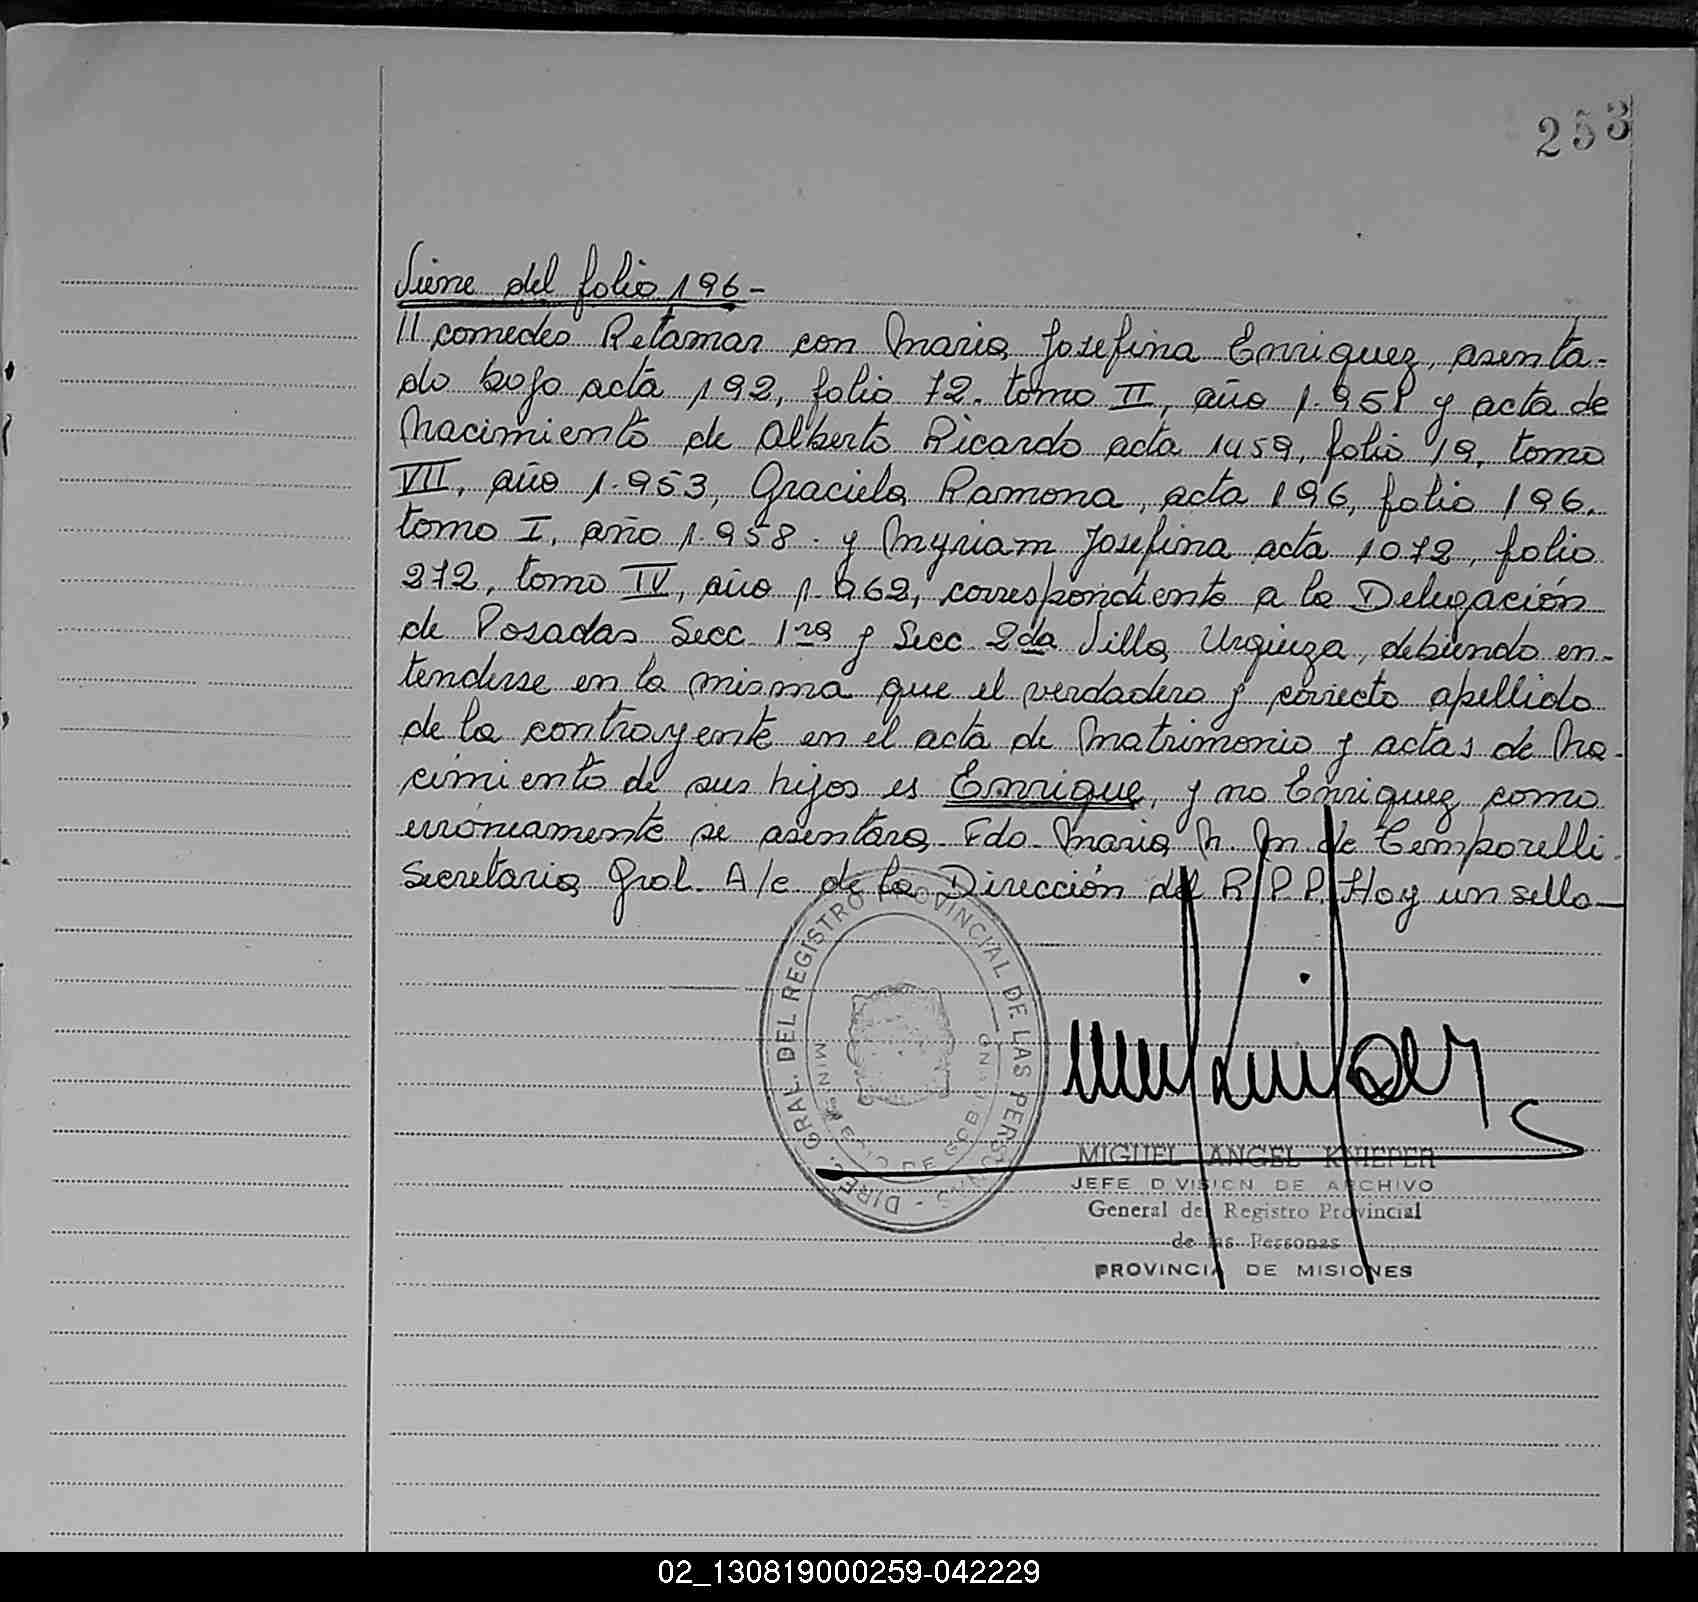 253
Viene del folio 196-
//comedes Retamar con Maria Josefina Enriquez, asenta-
do bajo acta 192, folio 72. tomo II, año 1.951 y acta de
Nacimiento de Alberto Ricardo acta 1459, folio 19, tomo
VII, año 1.953, Graciela Ramona, acta 196, folio 196.
tomo I, año 1.958. y Myriam Josefina acta 1072, folio
272, tomo IV, año 1.962, correspondiente a la Delegación
de Posadas Secc. 1ra y Secc. 2da Villa Urquiza, debiendo en-
tenderse en la misma que el verdadero y correcto apellido
de la contrayente en el acta de Matrimonio y actas de Na-
cimiento de sus hijos es Enrique, y no Enriquez como
erróneamente se asentara. Fdo. Maria N. M. de Temporelli.
Secretaria Gral. A/c de la Dirección del R.P.P. Hay un sello-
DIREC. GRAL. DEL REGISTRO PROVINCIAL DE LAS PERSONAS
MINISTERIO DE GOBIERNO
MIGUEL ANGEL KNIEPER
JEFE DIVISION DE ARCHIVO
General del Registro Provincial
de las Personas
PROVINCIA DE MISIONES
02_130819000259-042229